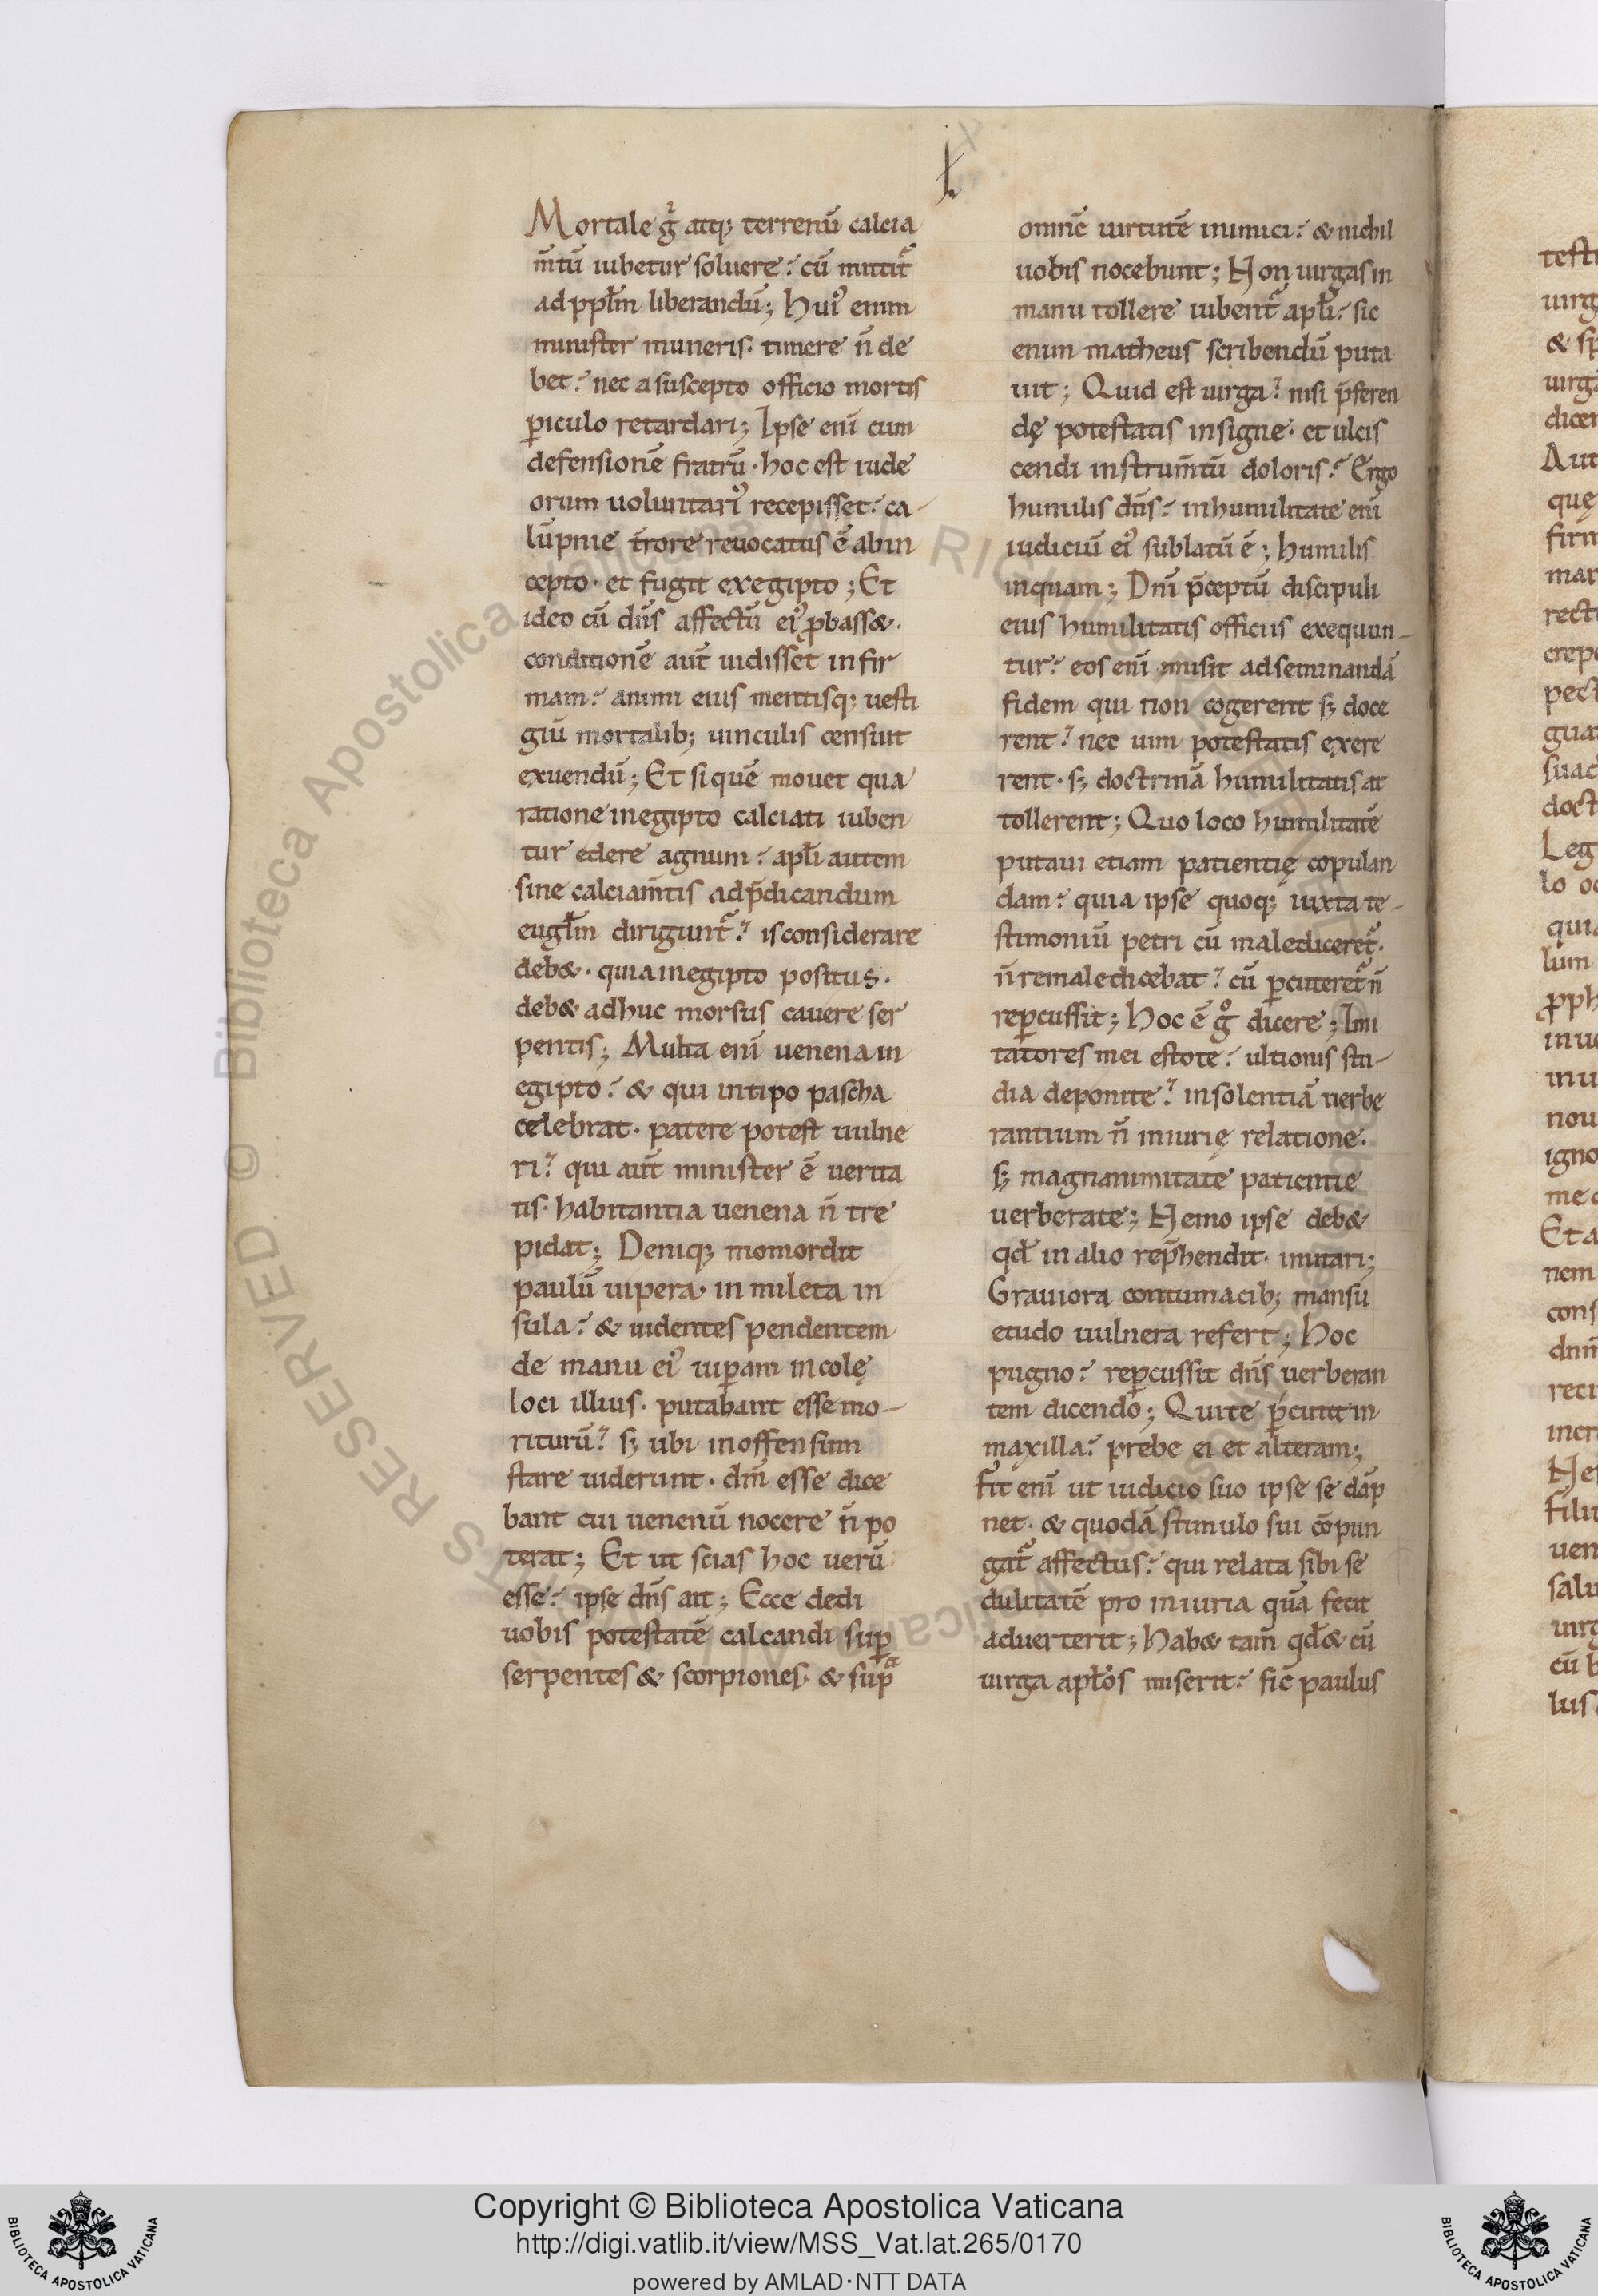 Mortale gͥ atq; terrenū calcia
m̄tū iubetur soluere? cū mittit᷑
ad ppl̄m liberandū; Huiꝰ enim
minister muneris. timere n̄ de
bet? nec a suscepto officio mortis
ꝑiculo retardari; Ipse enī cum
defensionē fratrū. hoc est iude
orum uoluntariꝰ recepisset? ca-
lūpnie t̄rore reuocatus ē abin
cepto. et fugit exegipto; Et
ideo cū dn̄s affectū eiꝰ ꝓbass&.
conditionē aut̄ uidisset infir
mam? animi eius mentisq; uesti
giū mortalib; uinculis censuit
exuendū; Et si quē mouet qua
ratione inegipto calciati iuben
tur edere agnum? apl̄i autem
sine calciam̄tis adp̄dicandum
eugl̄m dirigunt᷑? is considerare
deb&. quia inegipto positus.
deb& adhuc morsus cauere ser
pentis; Multa enī uenena in
egipto? & qui intipo pascha
celebrat. patere potest uulne
ri? qui aut̄ minister ē uerita
tis. habitantia uenena n̄ tre
pidat; Deniq; momordit
paulū uipera. in mileta in
sula? & uidentes pendentem
de manu eiꝰ uiꝑam incolę
loci illius. putabant esse mo-
riturū? s; ubi inoffensum
stare uiderunt. dm̄ esse dice
bant cui uenenū nocere n̄ po
terat; Et ut scias hoc uerū
esse? ipse dn̄s ait; Ecce dedi
uobis potestatē calcandi suꝑ
serpentes & scorpiones. & sup̄ᵃ
omnē uirtutē inimici? & nichil
uobis nocebunt; Non uirgas in
manu tollere iubent᷑ apl̄i? sic
enim matheus scribendū puta
uit; Quid est uirga? nisi p̄feren
dę potestatis insigne. et ulcis
cendi instrum̄tū doloris? Ergo
humilis dn̄s? inhumilitate enī
iudiciū eiꝰ sublatū ē; humilis
inquam; Dn̄i p̄ceptū discipuli
eius humilitatis officiis exequun-
tur? eos enī misit adseminandā
fidem qui non cogerent s; doce
rent? nec uim potestatis exere
rent. s; doctrinā humilitatis at
tollerent; Quo loco humilitatē
putaui etiam patientię copulan
dam? quia ipse quoq; iuxta te-
stimoniū petri cū malediceret᷑.
n̄ remaledicebat? cū ꝑcuteret᷑ n̄
reꝑcussit; Hoc ē gͦ dicere; Imi
tatores mei estote? ultionis stu-
dia deponite? insolentiā uerbe
rantium n̄ iniurię relatione.
s; magnanimitate patientie
uerberate; Nemo ipse deb&
qd̄ in alio rep̄hendit. imitari;
Grauiora contumacib; mansu
etudo uulnera refert; Hoc
pugno? reꝑcussit dn̄s uerberan
tem dicendo; Qui te ꝑcutit in
maxilla? prebe ei et alteram;
Fit enī ut iudicio suo ipse se dāp
net. & quodā stimulo sui cōpun
gat᷑ affectus? qui relata sibi se
dulitatē pro iniuria quā fecit
aduerterit; Hab& tam̄ qd̄ & cū
uirga apl̄os miserit? sic̄ paulus
Copyright © Biblioteca Apostolica Vaticana
http://digi.vatlib.it/view/MSS_Vat.lat.265/0170
powered by AMLAD·NTT DATA
BIBLIOTECA APOSTOLICA VATICANA
BIBLIOTECA APOSTOLICA VATICANA